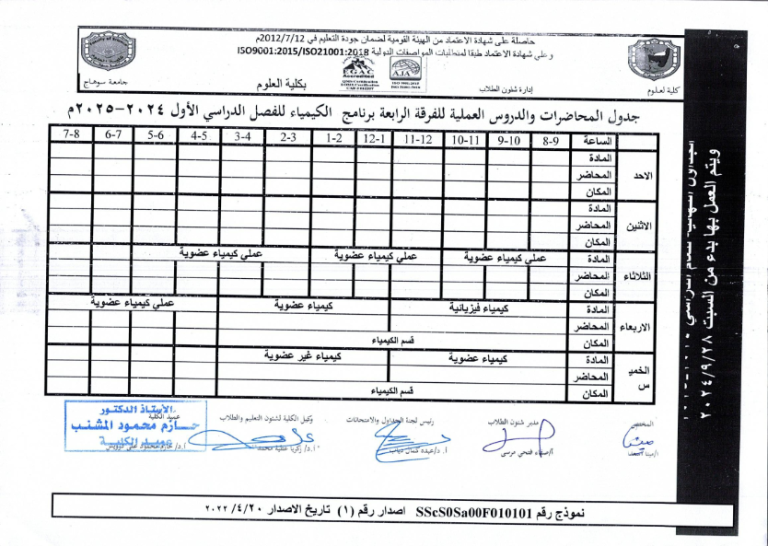 حاصلة على شهادة الاعتماد من الهيئة القومية لضمان جودة التعليم في 2012/7/12م
وعلى شهادة الاعتماد طبقا لمتطلبات المواصفات الدولية ISO9001:2015/ISO21001:2018
كلية العلوم
إدارة شئون الطلاب
بكلية العلوم
جامعة سوهاج
جدول المحاضرات والدروس العملية للفرقة الرابعة برنامج الكيمياء للفصل الدراسي الأول ٢٠٢٤-٢٠٢٥م
الساعة 8-9 9-10 10-11 11-12 12-1 1-2 2-3 3-4 4-5 5-6 6-7 7-8
الاحد
المادة
المحاضر
المكان
الاثنين
المادة
المحاضر
المكان
الثلاثاء
المادة عملي كيمياء عضوية عملي كيمياء عضوية عملي كيمياء عضوية
المحاضر
المكان
الاربعاء
المادة كيمياء فيزيائية كيمياء عضوية عملي كيمياء عضوية
المحاضر
المكان قسم الكيمياء
الخميس
المادة كيمياء عضوية كيمياء غير عضوية
المحاضر
المكان قسم الكيمياء
المختص
مدير شئون الطلاب
رئيس لجنة الجداول والامتحانات
وكيل الكلية لشئون التعليم والطلاب
عميد الكلية
الأستاذ الدكتور
حازم محمود المشنب
عميد الكلية
ويتم العمل بها بدء من السبت ٢٠٢٤/٩/٢٨
نموذج رقم SScS0Sa00F010101 اصدار رقم (١) تاريخ الاصدار ٢٠٢٢/٤/٢٠